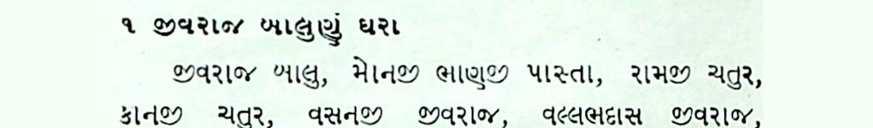 ૧ જીવરાજ બાલુણું ઘરા
જીવરાજ બાલુ, મોનજી ભાણજી પાસ્તા, રામજી ચતુર,
કાનજી ચતુર, વસનજી જીવરાજ, વલ્લભદાસ જીવરાજ,